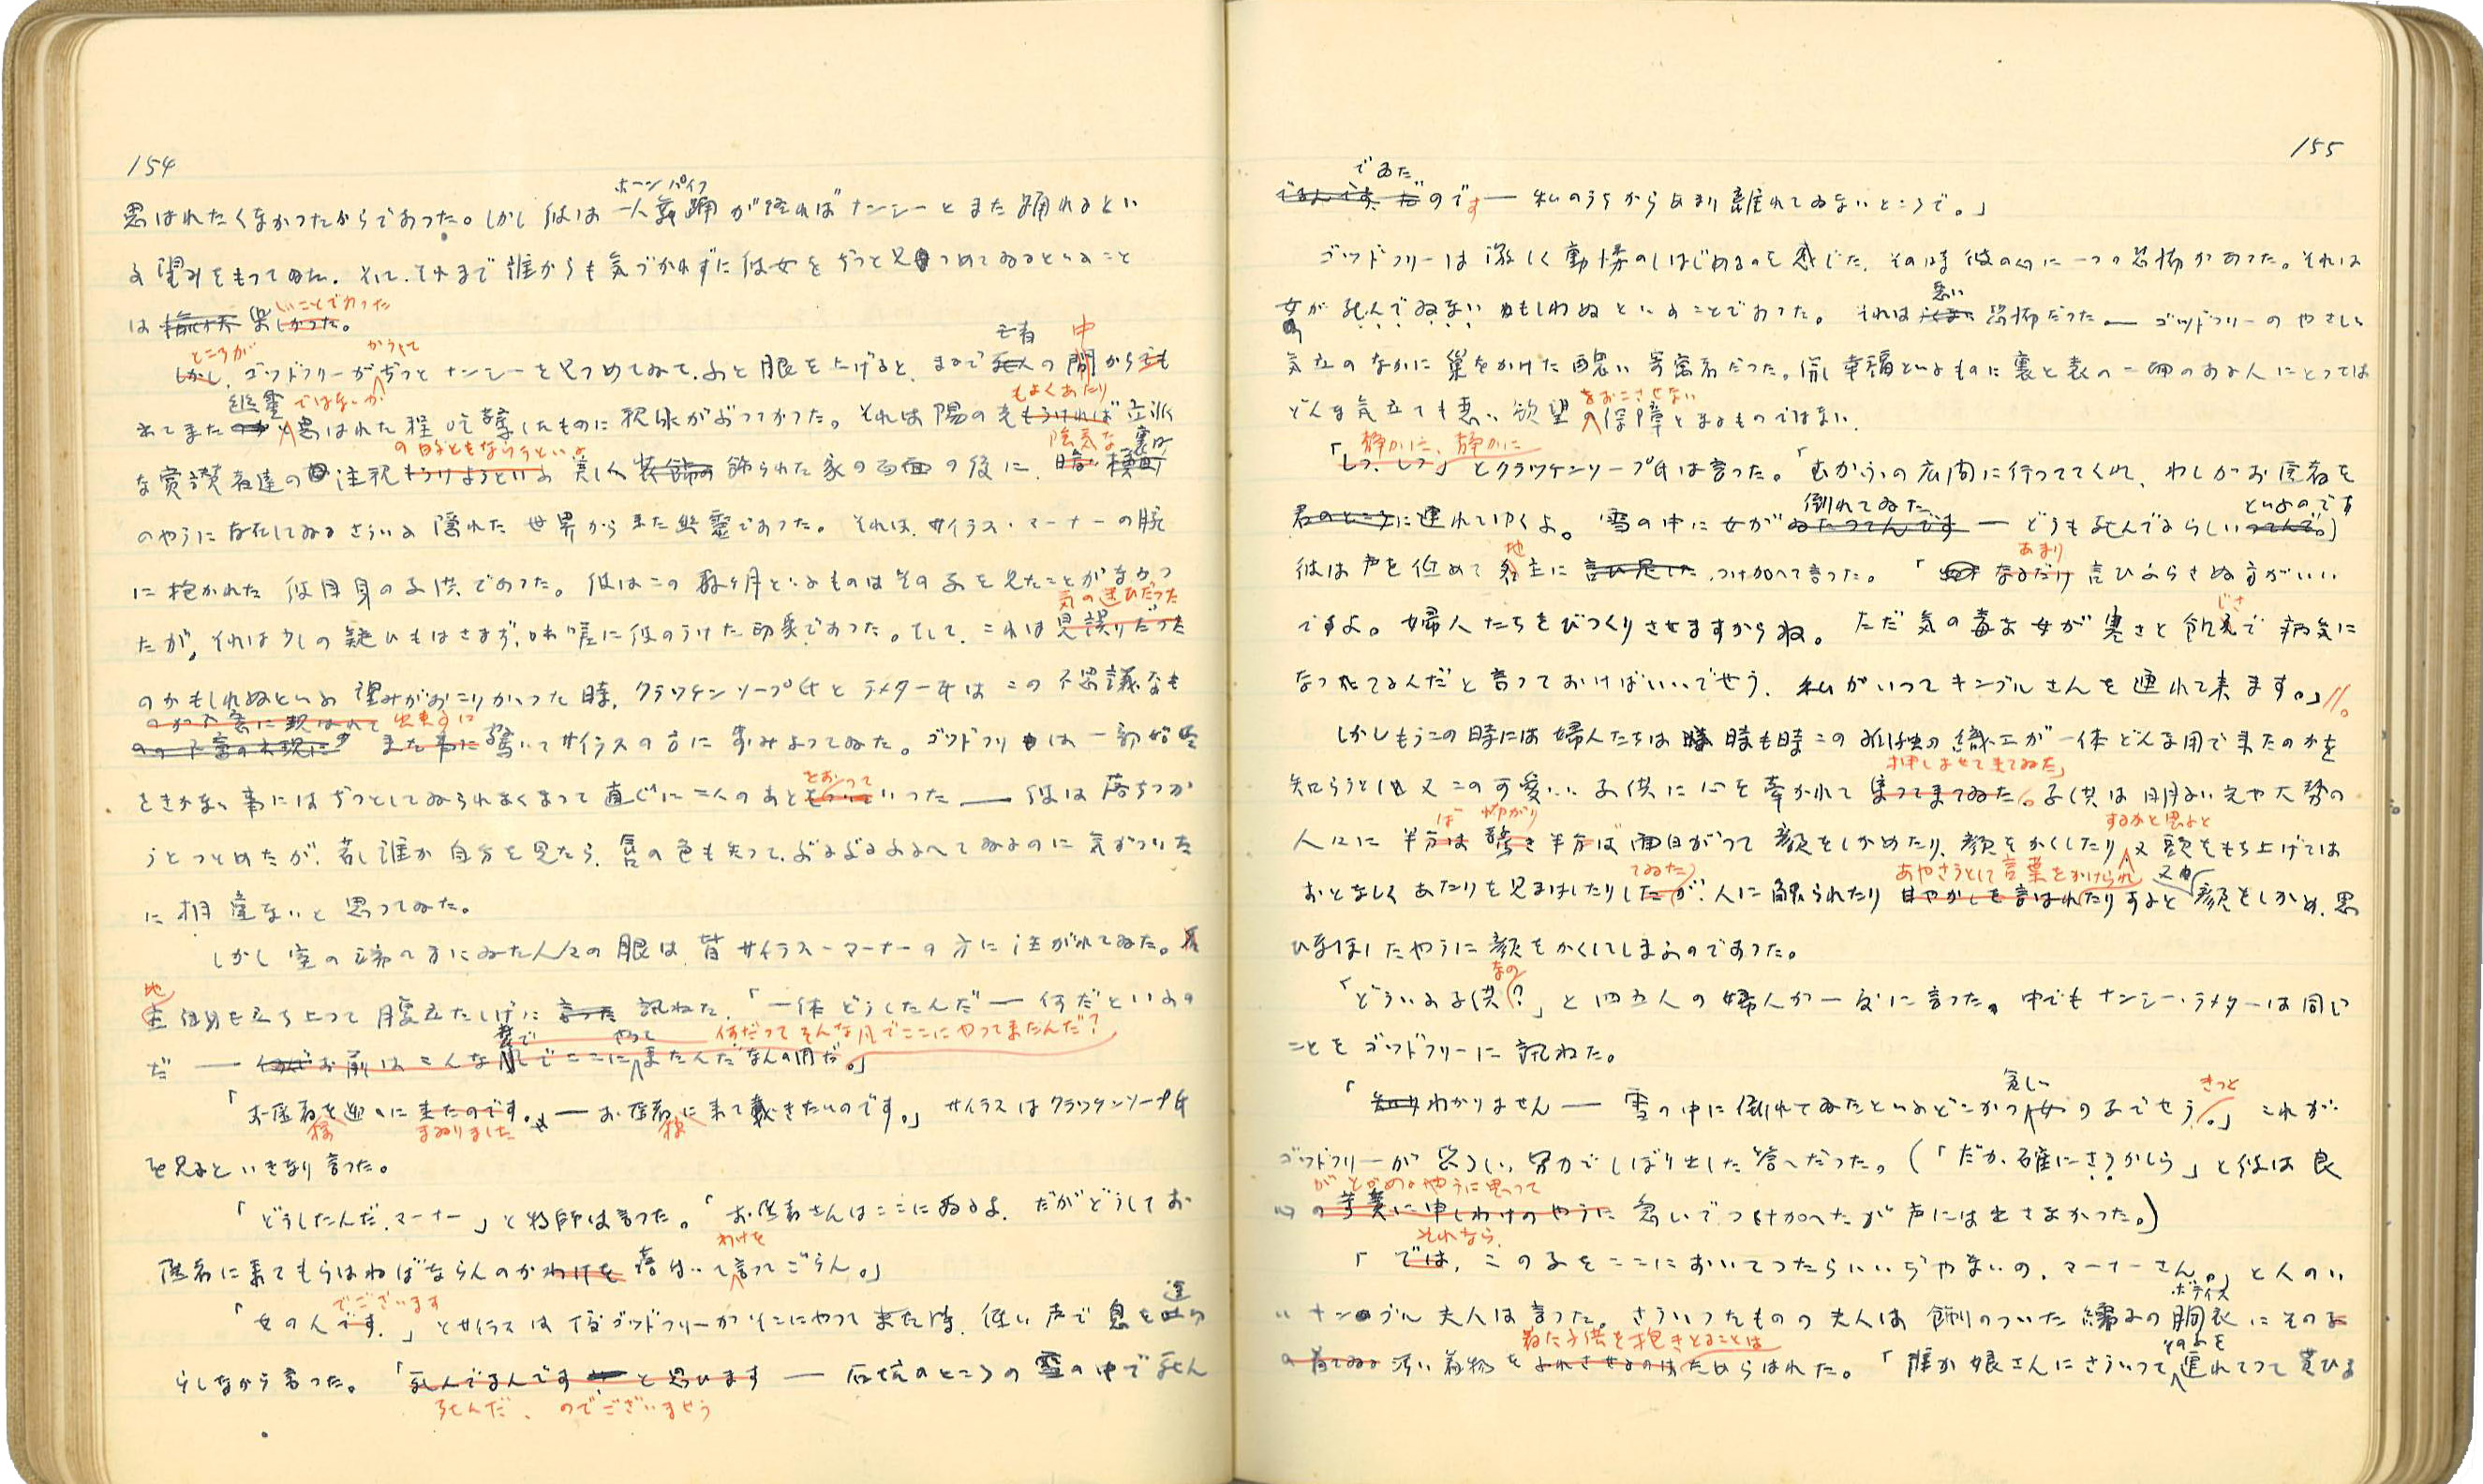 154
ホーンパイプ
思はれたくなかつたからであつた。しかし彼は一人舞踊が終ればナンシーとまた踊れるとい
ふ望みをもつてゐた。そして、それまで誰からも気づかれずに彼女をぢつと見つめてゐるといふこと
しいことであつた
は 楽しかつた。
ところが かうして 死者 中
しかし、ゴッドフリーがぢつとナンシーを見つめてゐて、ふと眼を上げると、まるで死人の間からでも
幽霊 ではないか もよくあたり
来てまた と思はれた程 吃驚したものに視線がぶつつかつた。それは陽の光もうければ立派
の的ともならうといふ 陰気な 裏町
な賞讃者達の注視もうけようといふ美しく装飾の飾られた家の正面の後に、暗い横町
のやうに存在してゐるさういふ隠れた世界から来た幽霊であつた。それは、サイラス・マーナーの腕
に抱かれた彼自身の子供であつた。彼はこの数ヶ月といふものはその子を見たことがなかつ
気の迷ひだつた
たが、それは少しの疑ひもはさまず、咄嗟に彼のうけた印象であつた。そして、これは見誤りだつた
のかもしれぬといふ望みがおこりかかつた時、クラッケンソープ氏とラメター氏はこの不思議なも
のが不意に現はれて 出来事に
のの不意の出現に また事に驚いてサイラスの方に歩みよつてゐた。ゴッドフリーは一部始終
をおつて
をきかない事にはぢつとしてゐられなくなつて直ぐに二人のあとをついていつた — 彼は落ちつか
うとつとめたが、若し誰か自分を見たら、唇の色も失つて、ぶるぶるふるへてゐるのに気がついた
に相違ないと思つてゐた。
しかし室の端の方にゐた人々の眼は、皆サイラス・マーナーの方に注がれてゐた。
地
主自身も立ち上つて腹立たしげに言つた 訊ねた、「一体どうしたんだ — 何だといふの
姿で やつて 何だつてそんな風でここにやつてきたんだ?
だ — お前はこんな風でここにきたんだなんの用だ。」
「お医者を迎へに来たのです。 — お医者に来て戴きたいのです。」サイラスはクラッケンソープ氏
様 まゐりました 様
を見るといきなり言つた。
「どうしたんだ、マーナー」と牧師は言つた。「お医者さんはここにゐるよ、だがどうしてお
わけを
医者に来てもらはねばならんのかわけを落付いて言つてごらん。」
でございます 途
「女の人です、」とサイラスは丁度ゴッドフリーがそこにやつてきた時、低い声で息を切
らしながら言つた。「死んでるんです と思ひます — 石坑のところの雪の中で死ん
死んだ、のでございませう
155
でゐた
でるんです、だのです — 私のうちからあまり離れてゐないところで。」
ゴッドフリーは激しく動悸のしはじめるのを感じた、その時彼の心に一つの恐怖があつた。それは
悪い
女が死んでゐないかもしれぬといふことであつた。それは 恐怖だつた — ゴッドフリーのやさしい
気立のなかに巣をかけた醜い寄寓者だつた。併し幸福といふものに裏と表の二面のある人にとつては
をおこさせない
どんな気立ても悪い欲望の保障となるものではない。
静かに、静かに
「しつ、しつ」とクラッケンソープ氏は言つた。「むかふの広間に行つててくれ、わしがお医者を
倒れてゐた といふのです
君のところに連れてゆくよ。雪の中に女がゐたつてんです — どうも死んでるらしいつてんで。」
地 あまり
彼は声を低めて主に言ひ足した、つけ加へて言つた。「 なるだけ言ひふらさぬ方がいい
じさ
ですよ。婦人たちをびつくりさせますからね。ただ気の毒な女が寒さと飢ゑで病気に
なつれてるんだと言つておけばいいでせう、私がいつてキンブルさんを連れて来ます。」
しかしもうこの時には婦人たちは 時も時この孤独の織工が一体どんな用で来たのかを
押しよせて来てゐた
知らうとし又この可愛いい子供に心を牽かれて集つてきてゐた。子供は明るい光や大勢の
ば いやがり するかと思ふと
人々に半分は驚き半分は面白がつて顔をしかめたり、顔をかくしたり又頭をもち上げては
てゐた あやさうとして言葉をかけられ 又
おとなしくあたりを見まはしたりしたが、人に触られたり甘やかしを言はれたりすると顔をしかめ、思
ひなほしたやうに顔をかくしてしまふのであつた。
なの
「どういふ子供?」と四五人の婦人が一度に言つた。中でもナンシー・ラメターは同じ
ことをゴッドフリーに訊ねた。
貧しい きつと
「知りわかりません — 雪の中に倒れてゐたといふどこかの女の子でせう。」これが
ゴッドフリーが苦るしい努力でしぼり出した答へだつた。(「だが、確にさうかしら」と彼は良
がとがめるやうに思つて
心の に申しわけのやうに急いでつけ加へたが声には出さなかつた。)
それなら、
「では、この子をここにおいてつたらいいぢやないの、マーナーさん。」と人のい
ボディス
いキンブル夫人は言つた。さういつたものの夫人は飾りのついた繻子の胴衣にその
ねた子供を抱きとることは その子を
の着てゐる汚い着物をふれさせるのはためらはれた。「誰か娘さんにさういつて連れてつて貰ひま